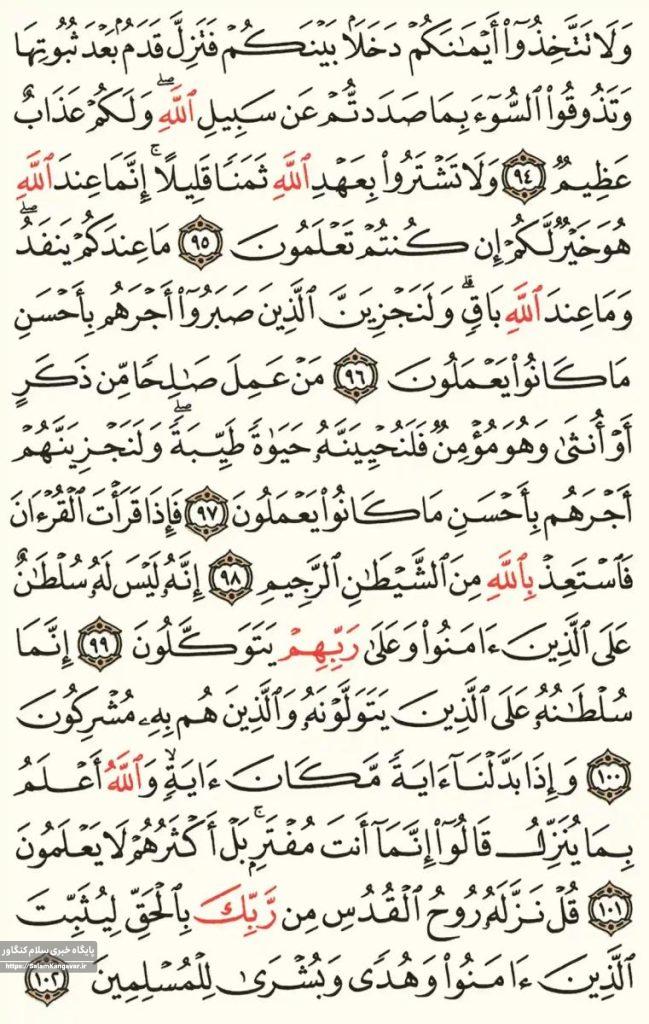 وَلَا تَتَّخِذُوٓا۟ أَيْمَـٰنَكُمْ دَخَلًۢا بَيْنَكُمْ فَتَزِلَّ قَدَمٌۢ بَعْدَ ثُبُوتِهَا
وَتَذُوقُوا۟ ٱلسُّوٓءَ بِمَا صَدَدتُّمْ عَن سَبِيلِ ٱللَّهِ ۖ وَلَكُمْ عَذَابٌ
عَظِيمٌ ٩٤ وَلَا تَشْتَرُوا۟ بِعَهْدِ ٱللَّهِ ثَمَنًا قَلِيلًا ۚ إِنَّمَا عِندَ ٱللَّهِ
هُوَ خَيْرٌ لَّكُمْ إِن كُنتُمْ تَعْلَمُونَ ٩٥ مَا عِندَكُمْ يَنفَدُ ۖ
وَمَا عِندَ ٱللَّهِ بَاقٍ ۗ وَلَنَجْزِيَنَّ ٱلَّذِينَ صَبَرُوٓا۟ أَجْرَهُم بِأَحْسَنِ
مَا كَانُوا۟ يَعْمَلُونَ ٩٦ مَنْ عَمِلَ صَـٰلِحًا مِّن ذَكَرٍ
أَوْ أُنثَىٰ وَهُوَ مُؤْمِنٌ فَلَنُحْيِيَنَّهُۥ حَيَوٰةً طَيِّبَةً ۖ وَلَنَجْزِيَنَّهُمْ
أَجْرَهُم بِأَحْسَنِ مَا كَانُوا۟ يَعْمَلُونَ ٩٧ فَإِذَا قَرَأْتَ ٱلْقُرْءَانَ
فَٱسْتَعِذْ بِٱللَّهِ مِنَ ٱلشَّيْطَـٰنِ ٱلرَّجِيمِ ٩٨ إِنَّهُۥ لَيْسَ لَهُۥ سُلْطَـٰنٌ
عَلَى ٱلَّذِينَ ءَامَنُوا۟ وَعَلَىٰ رَبِّهِمْ يَتَوَكَّلُونَ ٩٩ إِنَّمَا
سُلْطَـٰنُهُۥ عَلَى ٱلَّذِينَ يَتَوَلَّوْنَهُۥ وَٱلَّذِينَ هُم بِهِۦ مُشْرِكُونَ
١٠٠ وَإِذَا بَدَّلْنَآ ءَايَةً مَّكَانَ ءَايَةٍ ۙ وَٱللَّهُ أَعْلَمُ
بِمَا يُنَزِّلُ قَالُوٓا۟ إِنَّمَآ أَنتَ مُفْتَرٍۭ ۚ بَلْ أَكْثَرُهُمْ لَا يَعْلَمُونَ
١٠١ قُلْ نَزَّلَهُۥ رُوحُ ٱلْقُدُسِ مِن رَّبِّكَ بِٱلْحَقِّ لِيُثَبِّتَ
ٱلَّذِينَ ءَامَنُوا۟ وَهُدًى وَبُشْرَىٰ لِلْمُسْلِمِينَ ١٠٢
پایگاه خبری سلام کنگاور
https://SalamKangavar.ir